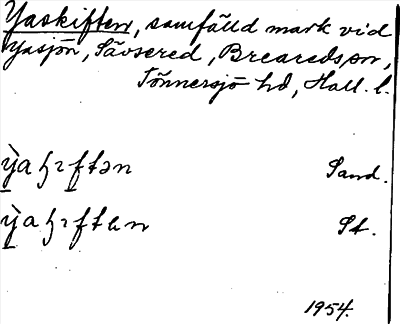 Yaskiften, samfälld mark vid
Yasjön, Sävsered, Breareds sn,
Tönnersjö hd, Hall. l.
Sand.
St.
1954.